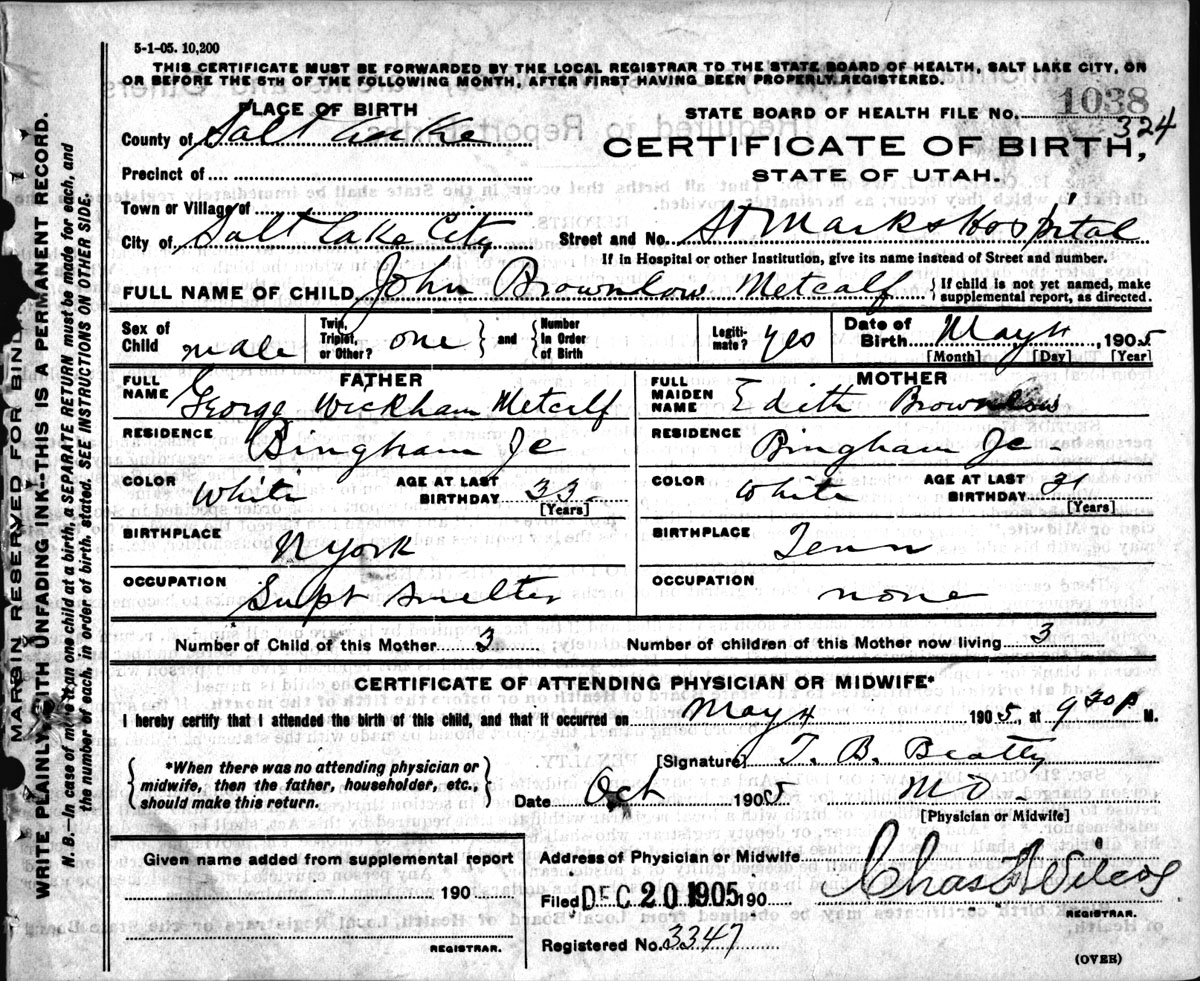 5-1-05. 10,200
THIS CERTIFICATE MUST BE FORWARDED BY THE LOCAL REGISTRAR TO THE STATE BOARD OF HEALTH, SALT LAKE CITY, ON
OR BEFORE THE 5TH OF THE FOLLOWING MONTH, AFTER FIRST HAVING BEEN PROPERLY REGISTERED.
PLACE OF BIRTH
STATE BOARD OF HEALTH FILE NO. 1038
324
County of Salt Lake
CERTIFICATE OF BIRTH,
Precinct of
STATE OF UTAH.
Town or Village of
City of Salt Lake City Street and No. St Marks Hospital
If in Hospital or other Institution, give its name instead of Street and number.
FULL NAME OF CHILD John Brownlow Metcalf { If child is not yet named, make
supplemental report, as directed.
Sex of Child male Twin, Triplet, or Other? one } and { Number In Order of Birth Legiti-mate? yes Date of Birth May 4, 1905
[Month] [Day] [Year]
FATHER MOTHER
FULL NAME George Wickham Metcalf FULL MAIDEN NAME Edith Brownlow
RESIDENCE Bingham Jc RESIDENCE Bingham Jc-
COLOR White AGE AT LAST BIRTHDAY 33- COLOR White AGE AT LAST BIRTHDAY 31
[Years] [Years]
BIRTHPLACE N York BIRTHPLACE Tenn
OCCUPATION Supt Smelter OCCUPATION none
Number of Child of this Mother 3 Number of children of this Mother now living 3
CERTIFICATE OF ATTENDING PHYSICIAN OR MIDWIFE*
I hereby certify that I attended the birth of this child, and that it occurred on May 4 1905, at 9 30 P M.
{ *When there was no attending physician or
midwife, then the father, householder, etc.,
should make this return. }
[Signature] T. B. Beatty
Date Oct 1905 MD-
[Physician or Midwife]
Given name added from supplemental report
190
REGISTRAR.
Address of Physician or Midwife
Filed DEC 20 1905 190 Chas Wilcox
REGISTRAR.
Registered No. 3347
(OVER)
MARGIN RESERVED FOR BINDI
WRITE PLAINLY WITH UNFADING INK-THIS IS A PERMANENT RECORD.
N. B.—In case of more than one child at a birth, a SEPARATE RETURN must be made for each, and
the number of each, in order of birth, stated. SEE INSTRUCTIONS ON OTHER SIDE.